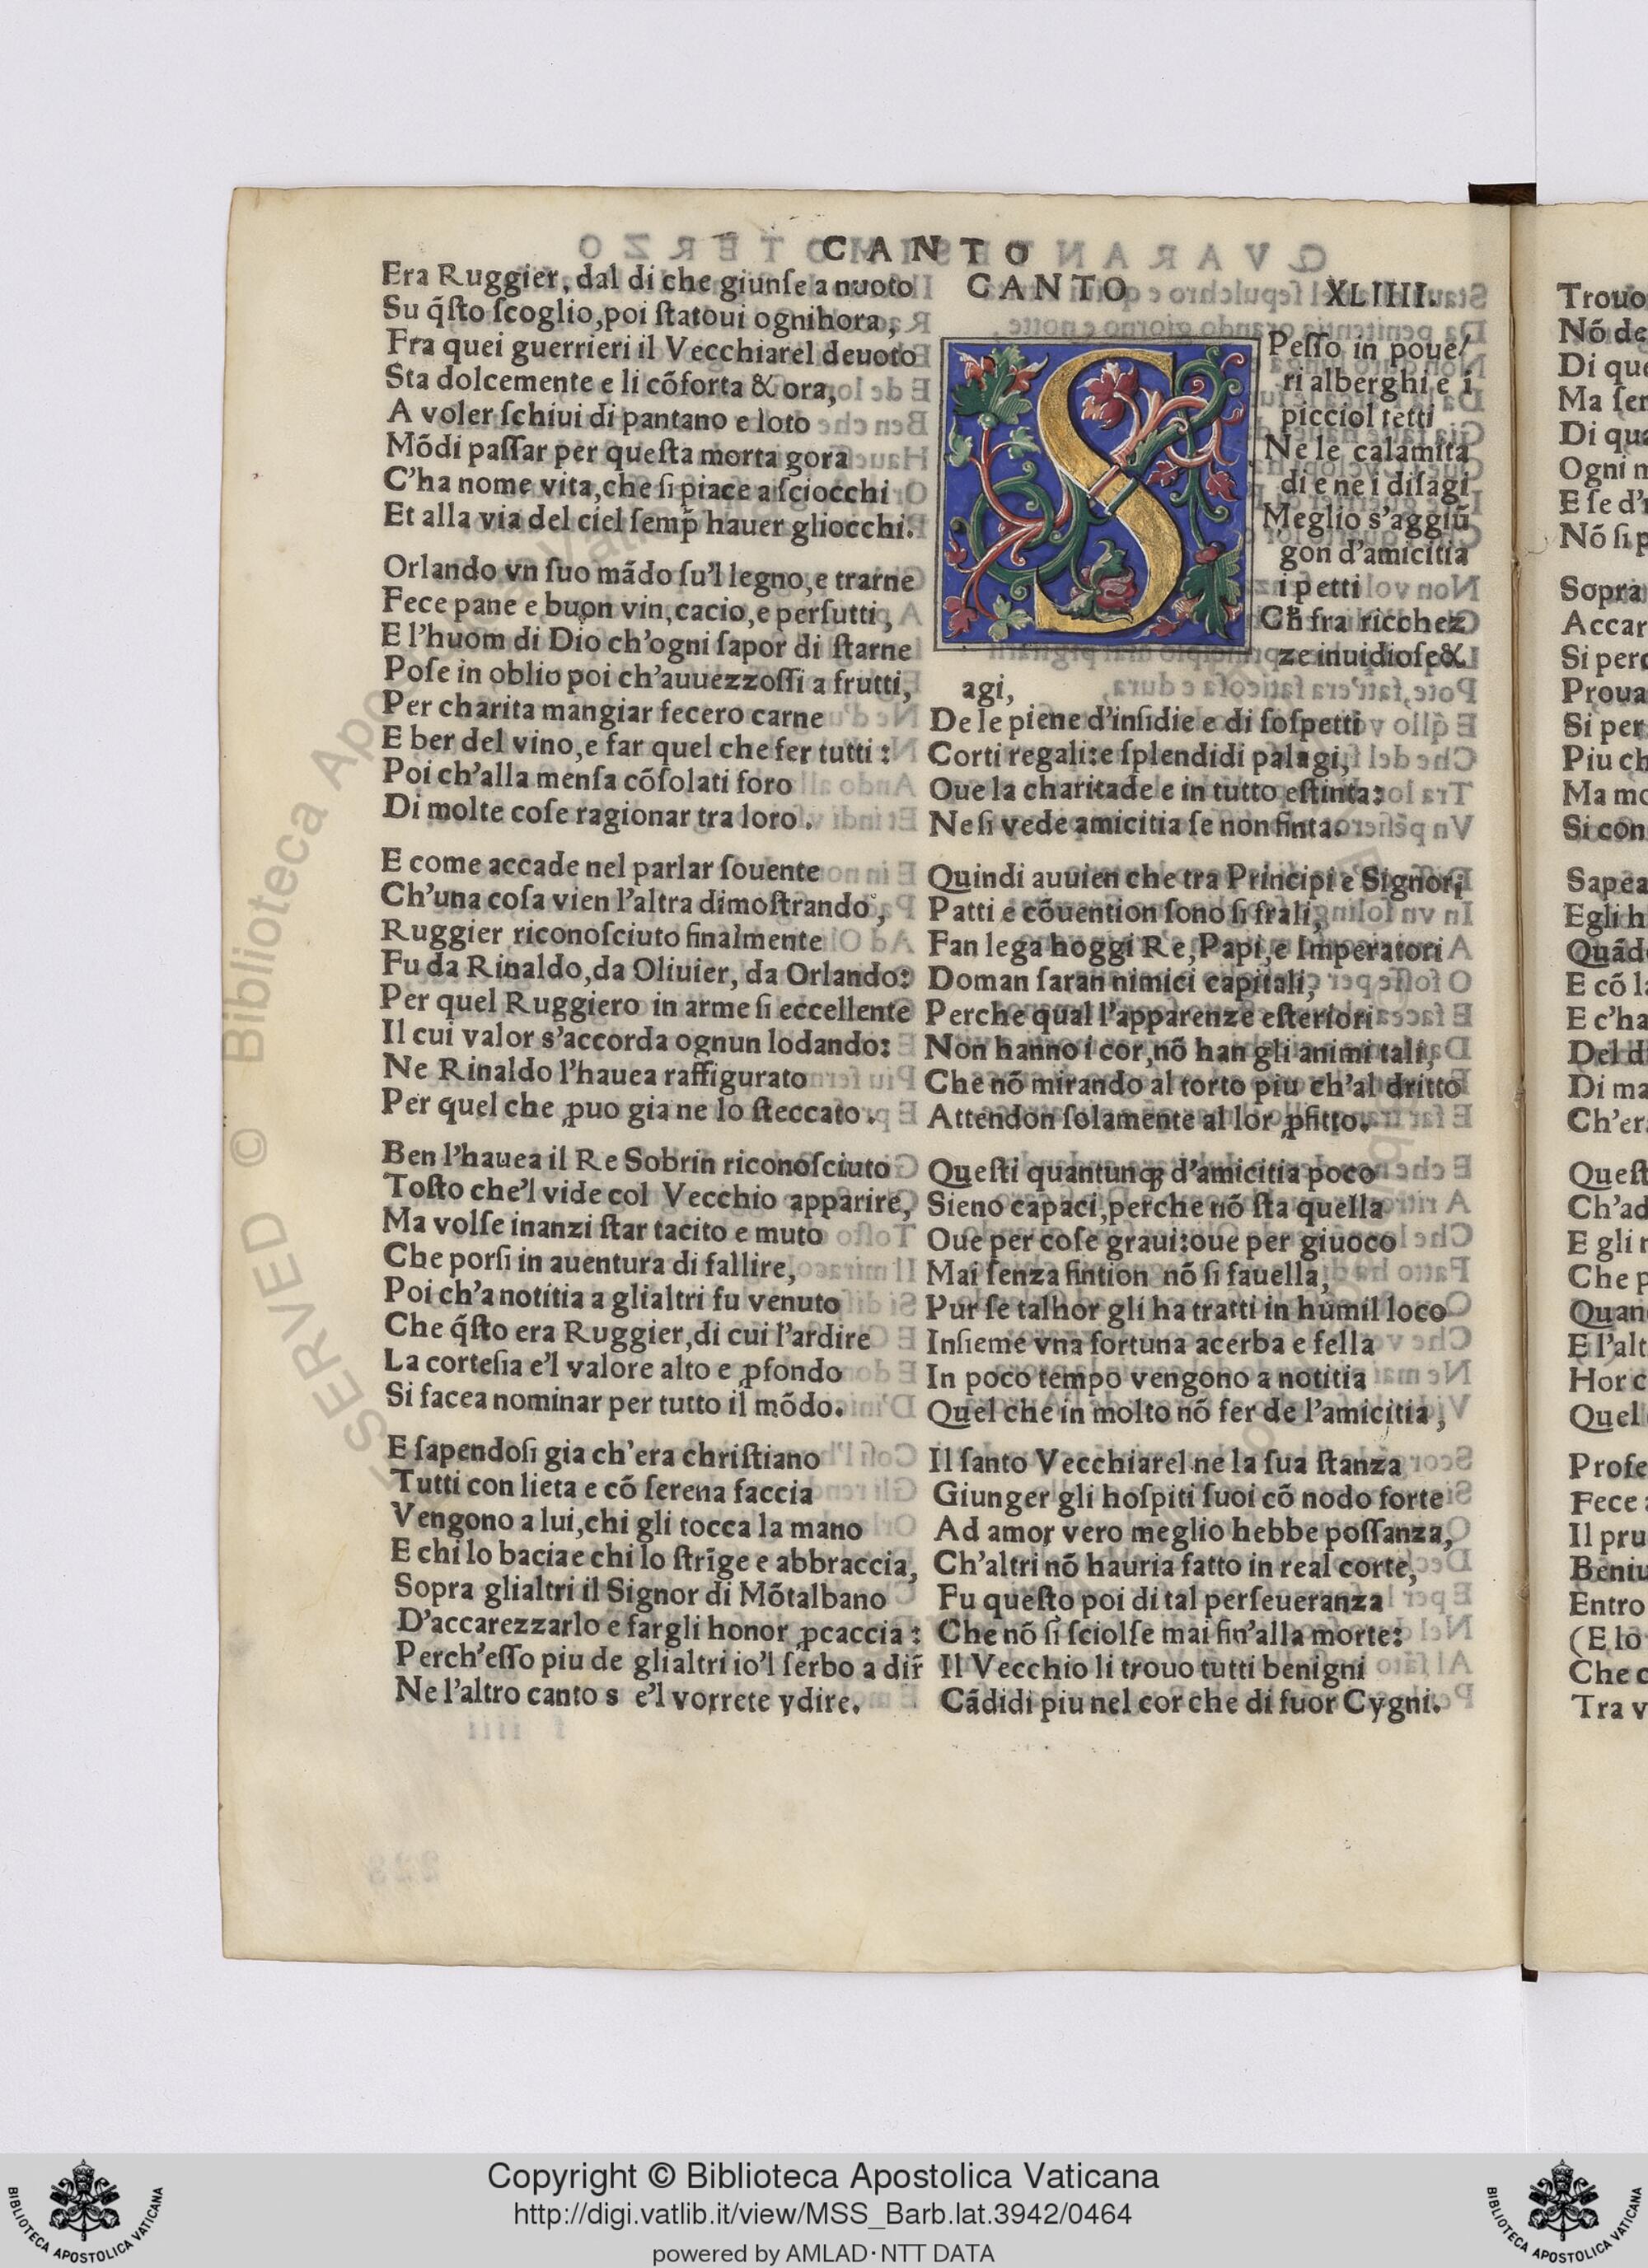 CANTO
Era Ruggier, dal di che giunſe a nuoto
Su q̃ſto ſcoglio, poi ſtatoui ognihora,
Fra quei guerrieri il Vecchiarel deuoto
Sta dolcemente e li cõforta & ora,
A voler ſchiui di pantano e loto
Mõdi paſſar per queſta morta gora
C'ha nome vita, che ſi piace a ſciocchi
Et alla via del ciel ſemp̃ hauer gliocchi.
Orlando vn ſuo mãdo ſu'l legno, e trarne
Fece pane e buon vin, cacio, e perſutti,
E l'huom di Dio ch'ogni ſapor di ſtarne
Poſe in oblio poi ch'auuezzoſſi a frutti,
Per charita mangiar fecero carne
E ber del vino, e far quel che fer tutti:
Poi ch'alla menſa cõſolati foro
Di molte coſe ragionar tra loro.
E come accade nel parlar ſouente
Ch'una coſa vien l'altra dimoſtrando,
Ruggier riconoſciuto finalmente
Fu da Rinaldo, da Oliuier, da Orlando:
Per quel Ruggiero in arme ſi eccellente
Il cui valor s'accorda ognun lodando:
Ne Rinaldo l'hauea raffigurato
Per quel che ꝓuo gia ne lo ſteccato.
Ben l'hauea il Re Sobrin riconoſciuto
Toſto che'l vide col Vecchio apparire,
Ma volſe inanzi ſtar tacito e muto
Che porſi in auentura di fallire,
Poi ch'a notitia a glialtri fu venuto
Che q̃ſto era Ruggier, di cui l'ardire
La corteſia e'l valore alto e ꝓfondo
Si facea nominar per tutto il mõdo.
E ſapendoſi gia ch'era chriſtiano
Tutti con lieta e cõ ſerena faccia
Vengono a lui, chi gli tocca la mano
E chi lo bacia e chi lo ſtrīge e abbraccia,
Sopra glialtri il Signor di Mõtalbano
D'accarezzarlo e fargli honor ꝓcaccia:
Perch'eſſo piu de glialtri io'l ſerbo a dir̃
Ne l'altro canto s e'l vorrete vdire.
CANTO XLIIII.
SPeſſo in poue/
ri alberghi e ī
picciol tetti
Ne le calamita
di e ne i diſagi
Meglio s'aggiũ
gon d'amicitia
i petti
Cħ fra ricchez
ze inuidioſe &
agi,
De le piene d'inſidie e di ſoſpetti
Corti regali: e ſplendidi palagi,
Oue la charitade e in tutto eſtinta:
Ne ſi vede amicitia ſe non finta.
Quindi auuien che tra Principi e Signori
Patti e cõuention ſono ſi frali,
Fan lega hoggi Re, Papi, e Imperatori
Doman ſaran nimici capitali,
Perche qual l'apparenze eſteriori
Non hanno i cor, nõ han gli animi tali,
Che nõ mirando al torto piu ch'al dritto
Attendon ſolamente al lor ꝓfitto.
Queſti quantunqꝫ d'amicitia poco
Sieno capaci, perche nõ ſta quella
Oue per coſe graui: oue per giuoco
Mai ſenza fintion nõ ſi fauella,
Pur ſe talhor gli ha tratti in humil loco
Inſieme vna fortuna acerba e fella
In poco tempo vengono a notitia
Quel che in molto nõ fer de l'amicitia,
Il ſanto Vecchiarel ne la ſua ſtanza
Giunger gli hoſpiti ſuoi cõ nodo forte
Ad amor vero meglio hebbe poſſanza,
Ch'altri nõ hauria fatto in real corte,
Fu queſto poi di tal perſeueranza
Che nõ ſi ſciolſe mai fin'alla morte:
Il Vecchio li trouo tutti benigni
Cãdidi piu nel cor che di fuor Cygni.
Trouo
Nõ de
Di que
Ma ſer
Di qua
Ogni m
E ſe d'i
Nõ ſi p
Sopra
Accar
Si perc
Proua
Si per
Piu ch
Ma mo
Si con
Sapea
Egli h
Quãd
E cõ la
E c'ha
Del d
Di ma
Ch'er
Queſt
Ch'ad
E gli r
Che p
Quan
E l'alt
Hor c
Quel
Profe
Fece
Il pru
Beniu
Entro
(E lo
Che c
Tra v
RESERVED © Biblioteca Apostolica Vaticana
BIBLIOTECA APOSTOLICA VATICANA
Copyright © Biblioteca Apostolica Vaticana
http://digi.vatlib.it/view/MSS_Barb.lat.3942/0464
powered by AMLAD·NTT DATA
BIBLIOTECA APOSTOLICA VATICANA